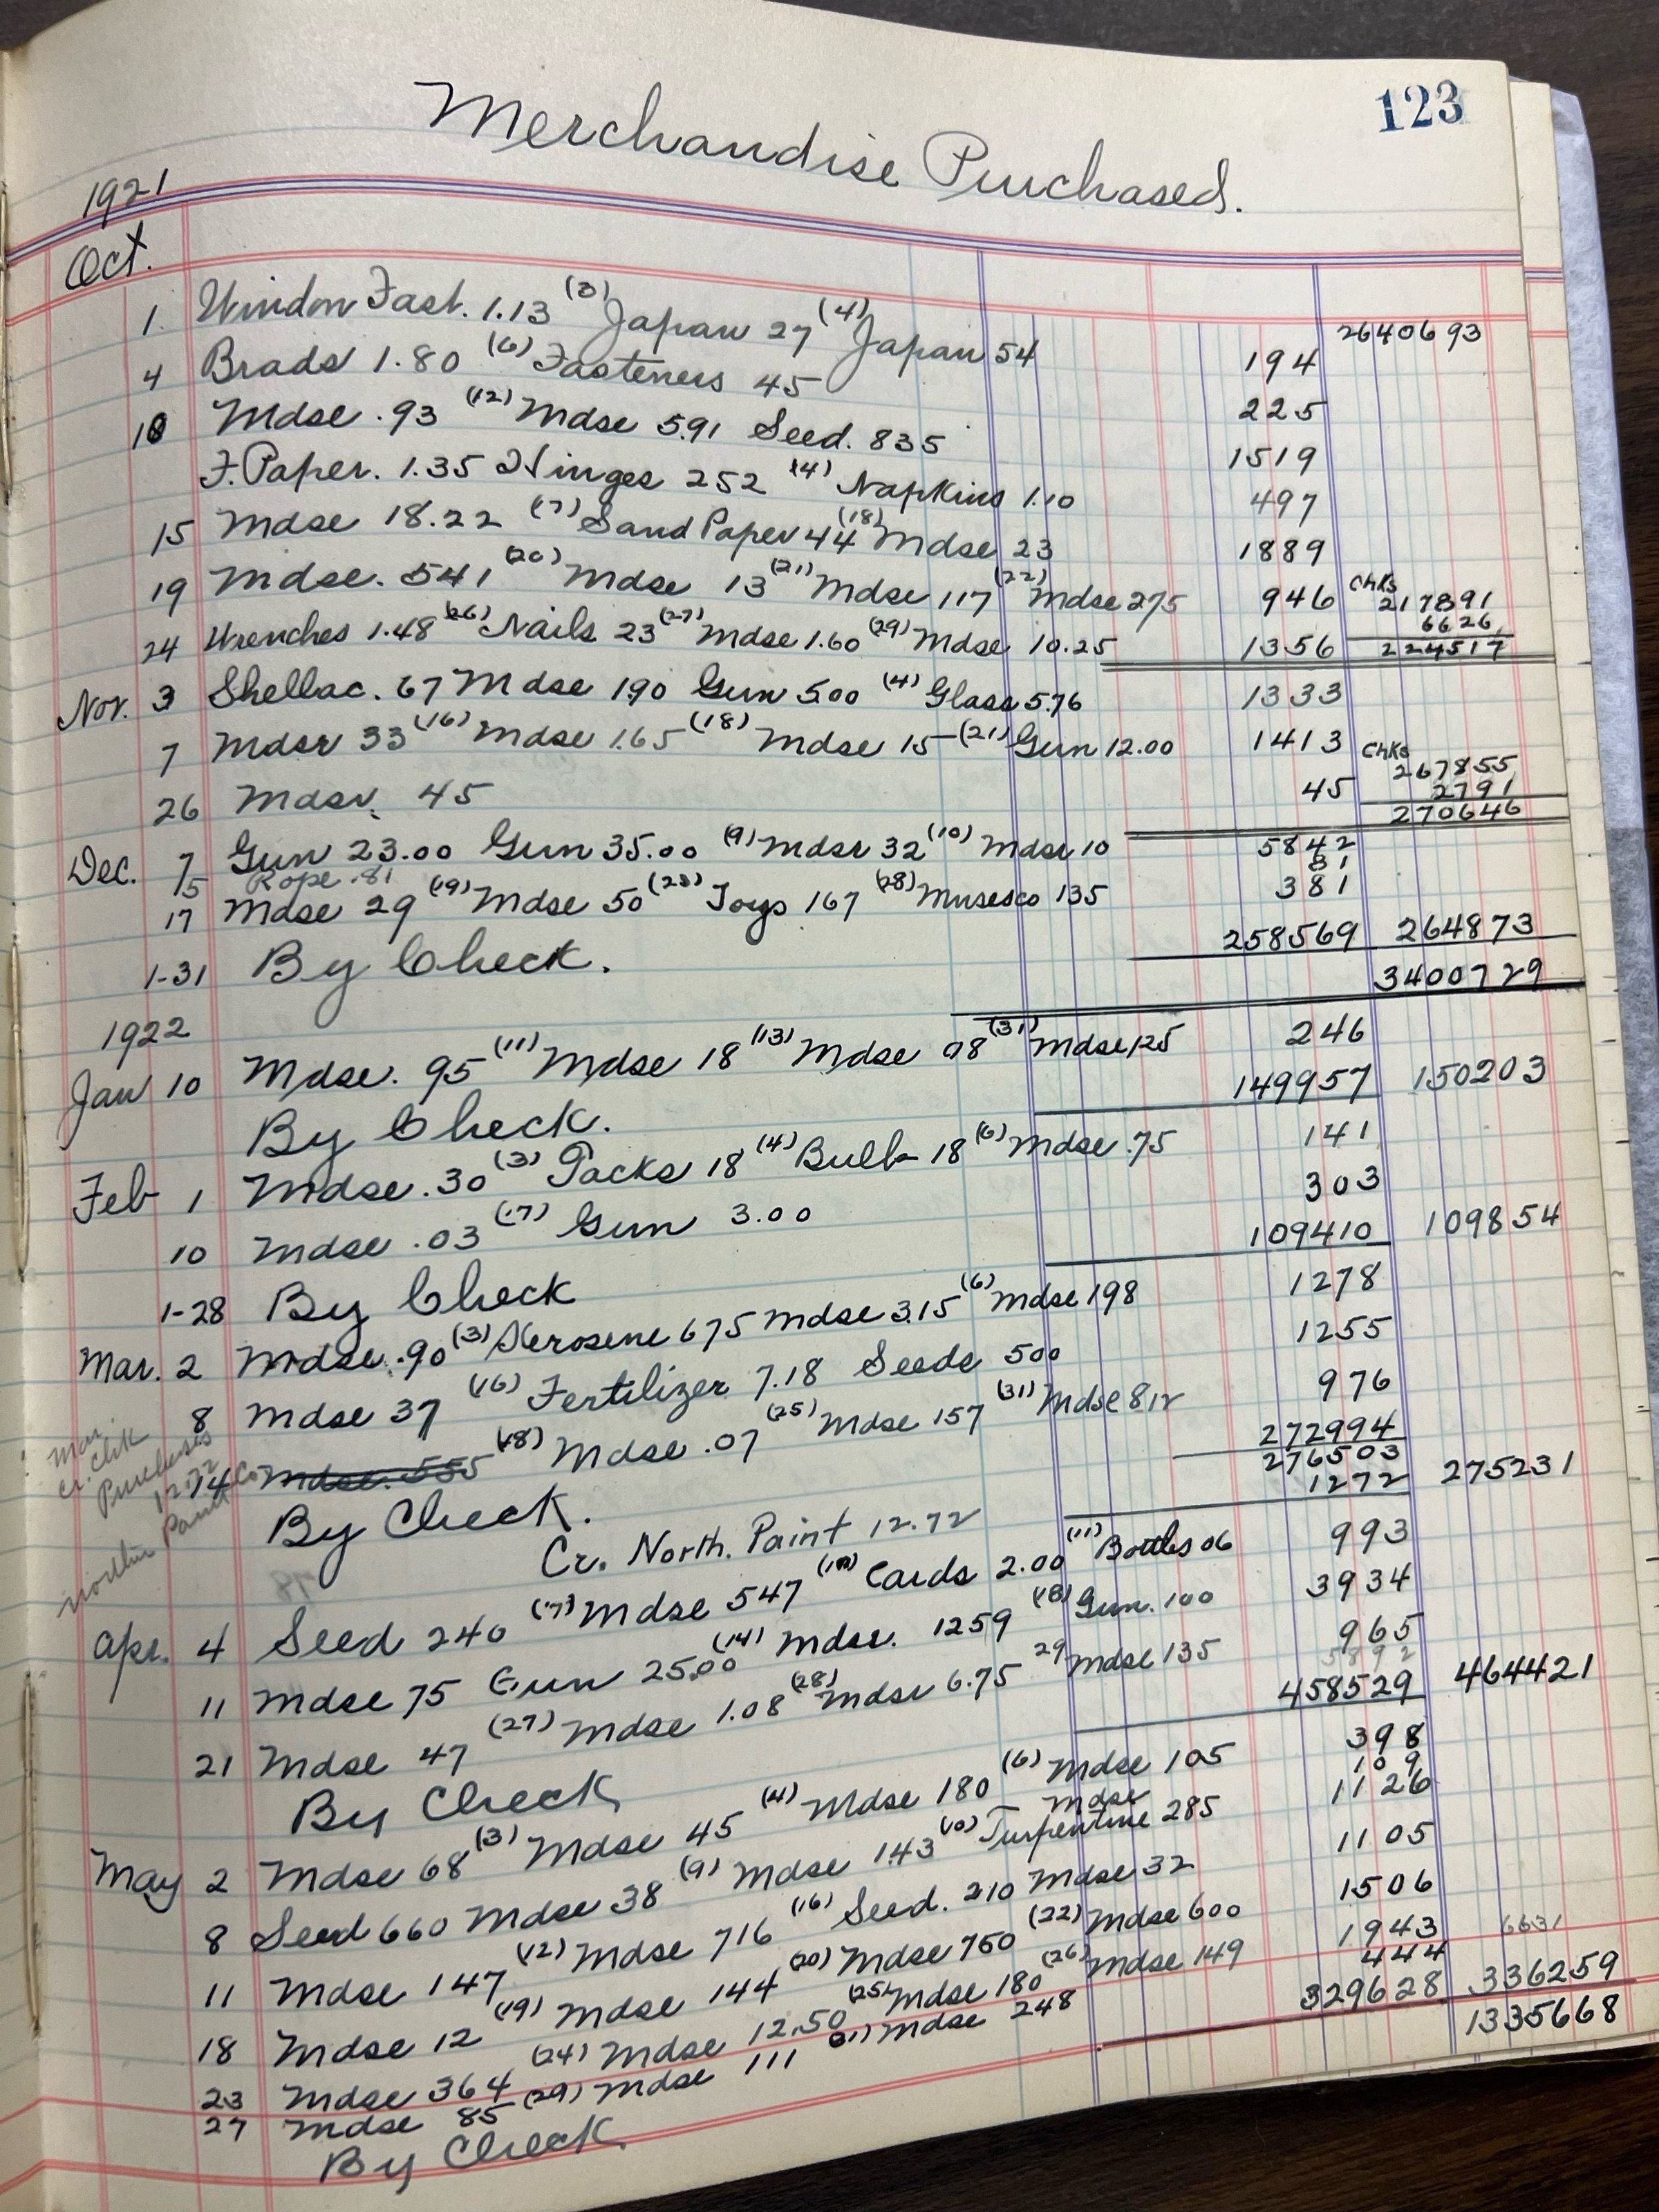 123
Merchandise Purchased.
1921
Oct.
2640693
1. Window Fast. 1.13 (3) Japan 27 (4) Japan 54 194
4 Brads 1.80 (6) Fasteners 45 225
10 Mdse .93 (12) Mdse 5.91 Seed. 835 1519
F. Paper. 1.35 Hinges 252 (14) Napkins 1.10 497
15 Mdse 18.22 (17) Sand Paper 44 (18) Mdse 23 1889
19 Mdse. 541 (20) Mdse 13 (21) Mdse 117 (22) Mdse 275 946 Chks 217891
6626
24 Wrenches 1.48 (26) Nails 23 (27) Mdse 1.60 (29) Mdse 10.25 1356 224517
Nov. 3 Shellac. 67 Mdse 190 Gun 5.00 (4) Glass 5.76 1333
7 Mdse 33 (16) Mdse 1.65 (18) Mdse 15 (21) Gun 12.00 1413 Chks
267855
26 Mdse. 45 45 2791
270646
Dec. 7 Gun 23.00 Gun 35.00 (9) Mdse 32 (10) Mdse 10 5842
15 Rope .81 81
17 Mdse 29 (19) Mdse 50 (23) Toys 167 (28) 135 381
1-31 By Check. 258569 264873
3400729
1922
Jan 10 Mdse. 95 (11) Mdse 18 (13) Mdse 08 (31) Mdse 125 246
By Check. 149957 150203
Feb 1 Mdse .30 (3) Tacks 18 (4) Bulb 18 (6) Mdse .75 141
10 Mdse .03 (17) Gun 3.00 303
1-28 By Check 109410 109854
Mar. 2 Mdse .90 (3) Kerosene 675 Mdse 3.15 (6) Mdse 198 1278
8 Mdse 37 (16) Fertilizer 7.18 Seeds 500 1255
14 Mdse. 555 (18) Mdse .07 (25) Mdse 157 (31) Mdse 812 976
By Check. 272994
276503
Cr. North. Paint 12.72 1272 275231
Mar
Cr. Chk
Purchases
1272
Northern Paint Co.
Apr. 4 Seed 240 (7) Mdse 547 (10) Cards 2.00 (11) Bottles 06 993
11 Mdse 75 Gun 25.00 (14) Mdse. 1259 (18) Gun. 100 3934
21 Mdse 47 (27) Mdse 1.08 (28) Mdse 6.75 29 Mdse 135 965
5892
By Check 458529 464421
May 2 Mdse 68 (3) Mdse 45 (4) Mdse 180 (6) Mdse 105 398
Mdse 109
8 Seed 660 Mdse 38 (9) Mdse 1.43 (10) Turpentine 285 1126
11 Mdse 147 (12) Mdse 716 (16) Seed. 210 Mdse 32 1105
18 Mdse 12 (19) Mdse 144 (20) Mdse 750 (22) Mdse 600 1506
23 Mdse 364 (24) Mdse 12.50 (25) Mdse 180 (26) Mdse 149 1943 6631
27 Mdse 85 (29) Mdse 111 (31) Mdse 248 444
By Check 329628 336259
1335668